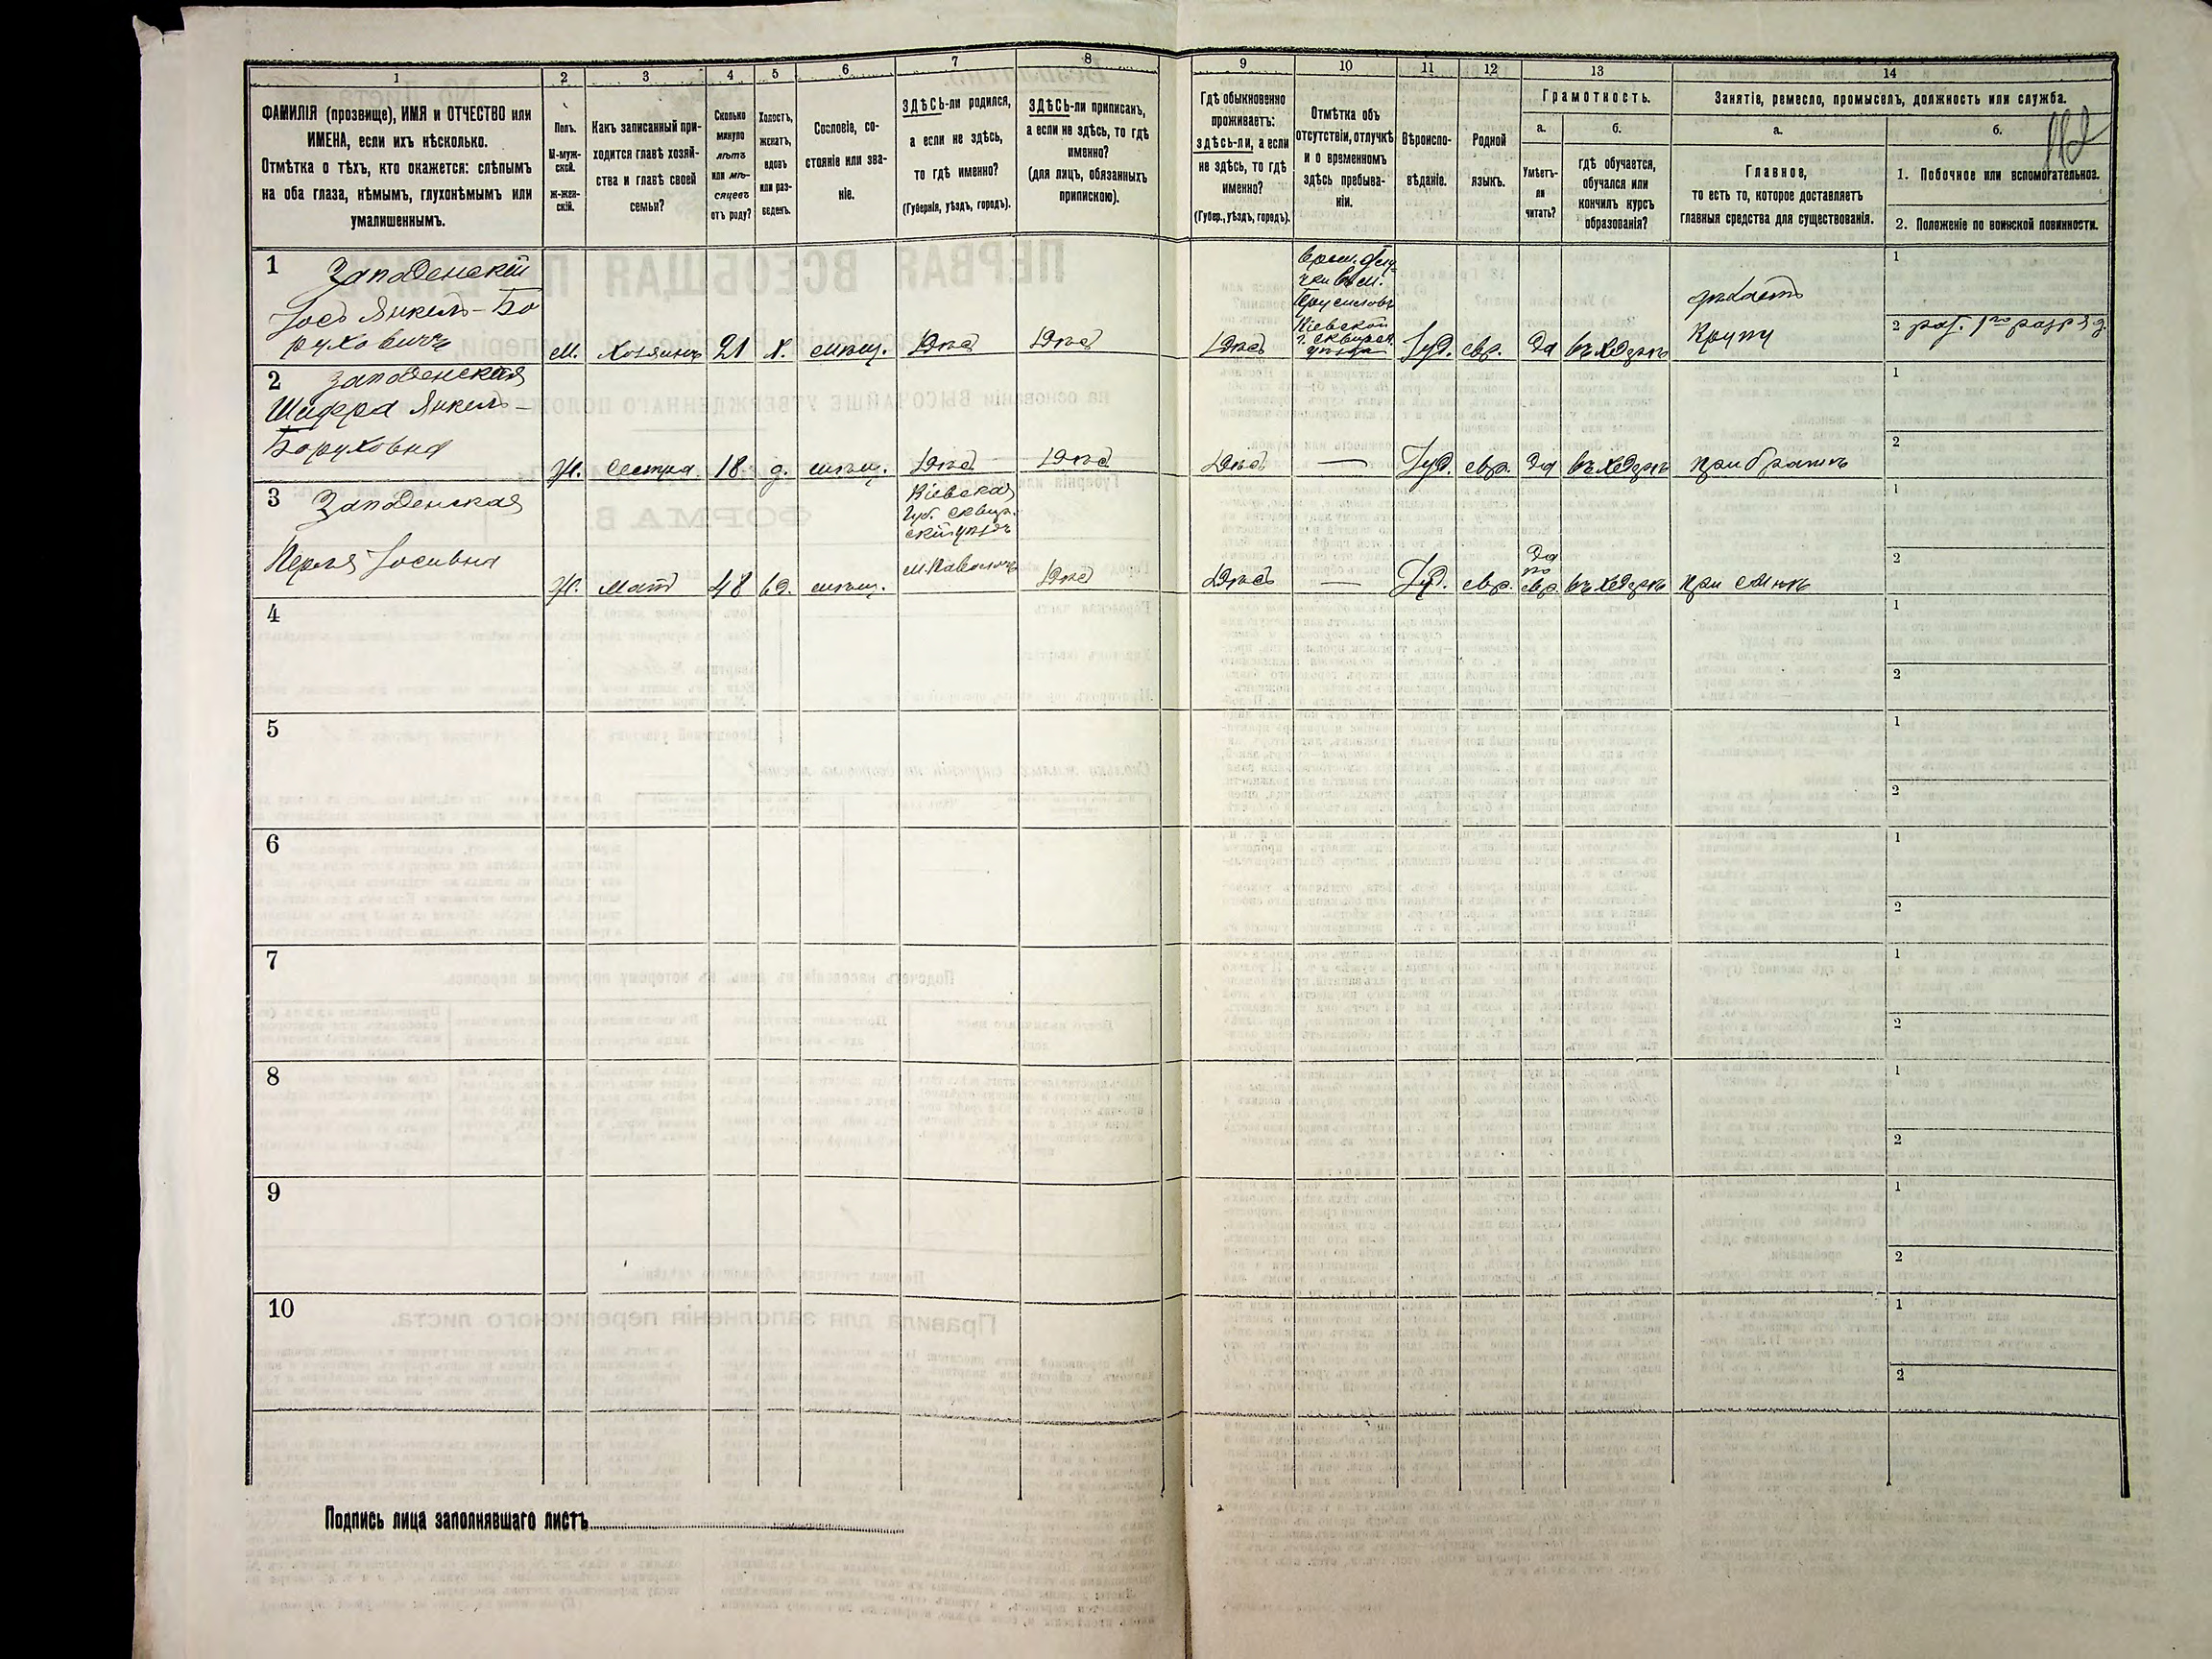 1 2 3 4 5 6 7 8 9 10 11 12 13 14
ФАМИЛІЯ (прозвище), ИМЯ и ОТЧЕСТВО или
ИМЕНА, если ихъ нѣсколько.
Отмѣтка о тѣхъ, кто окажется: слѣпымъ
на оба глаза, нѣмымъ, глухонѣмымъ или
умалишеннымъ.
Полъ.
М-муж-
ской.
Ж-жен-
скій.
Какъ записанный при-
ходится главѣ хозяй-
ства и главѣ своей
семьи?
Сколько
минуло
лѣтъ
или мѣ-
сяцевъ
отъ роду?
Холостъ,
женатъ,
вдовъ
или раз-
веденъ.
Сословіе, со-
стояніе или зва-
ніе.
ЗДѢСЬ-ли родился,
а если не здѣсь,
то гдѣ именно?
(Губернія, уѣздъ, городъ).
ЗДѢСЬ-ли приписанъ,
а если не здѣсь, то гдѣ
именно?
(для лицъ, обязанныхъ
припискою).
Гдѣ обыкновенно
проживаетъ:
здѣсь-ли, а если
не здѣсь, то гдѣ
именно?
(Губер., уѣздъ, городъ).
Отмѣтка объ
отсутствіи, отлучкѣ
и о временномъ
здѣсь пребыва-
ніи.
Вѣроиспо-
вѣданіе.
Родной
языкъ.
Грамотность.
а.
Умѣетъ-
ли
читать?
б.
гдѣ обучается,
обучался или
кончилъ курсъ
образованія?
Занятіе, ремесло, промыселъ, должность или служба.
а.
Главное,
то есть то, которое доставляетъ
главныя средства для существованія.
б.
1. Побочное или вспомогательное.
2. Положеніе по воинской повинности.
1 Западенскій
Іосъ Янкель-Бо
руховичъ
М. Хозяинъ 21 Х. мѣщ. здѣсь здѣсь
здѣсь
Кіевской
Іуд. евр. да въ хедерѣ
дѣлаетъ
Крупу
1
2
2 Западенская
Шифра Янкель-
Боруховна
Ж. Сестра 18 д. мѣщ. здѣсь здѣсь
здѣсь — Іуд. евр. да въ хедерѣ при братѣ
1
2
3 Западенская
Перля Іосивна
Ж. Мать 48 вд. мѣщ.
Кіевская
Губ. Сквир-
скій уѣздъ
м. Паволочь
здѣсь
здѣсь — Іуд. евр.
да
по
евр.
въ хедерѣ при сынѣ
1
2
4
1
2
5
1
2
6
1
2
7
1
2
8
1
2
9
1
2
10
1
2
Подпись лица заполнявшаго листъ